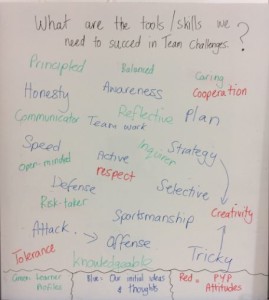 What are the tools/skills we
need to succed in Team Challenges?
Principled Balanced Caring
Honesty Awareness Cooperation
Communicator Reflective Plan
Team work
Speed Inquirer Strategy
open-minded Active
respect
Defense Selective
Risk-taker
Sportsmanship Creativity
Attack Offense
Tolerance Knowledgable Tricky
Green: Learner Profiles
Blue: Our initial ideas & thoughts
Red: PYP Attitudes